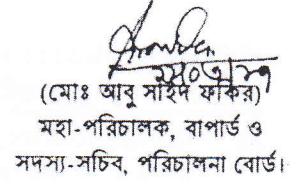 (মোঃ আবু সাইদ ফকির)
মহা-পরিচালক, বাপার্ড ও
সদস্য-সচিব, পরিচালনা বোর্ড।